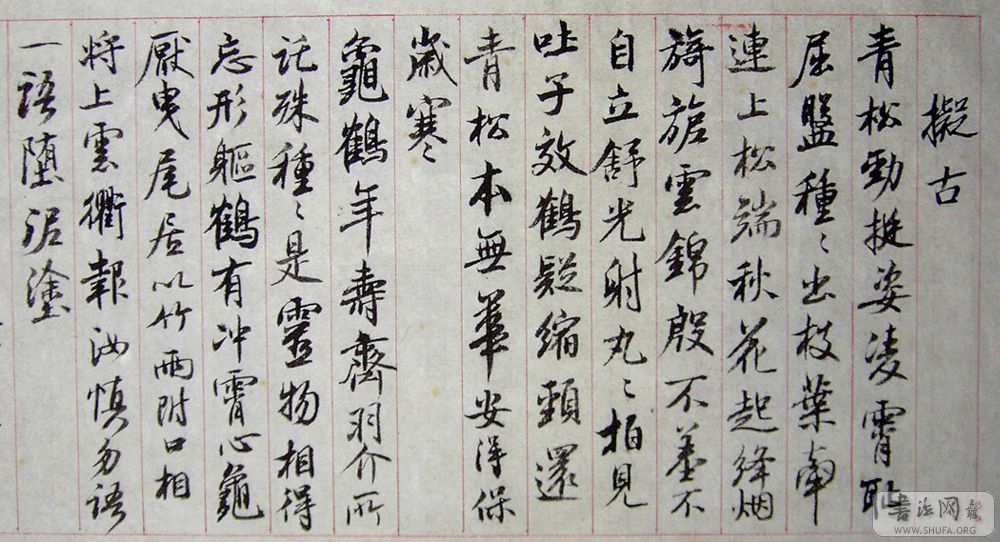 擬古
青松勁挺姿凌霄耻
屈盤種〻出枝葉牽
連上松端秋花起絳烟
旖旎雲錦殷不羞不
自立舒光射丸〻柏見
吐子效鶴疑縮頸還
青松本無華安得保
歲寒
龜鶴年壽齊羽介所
託殊種〻是靈物相得
忘形軀鶴有冲霄心龜
厭曳尾居以竹兩附口相
將上雲衢報汝慎勿語
一語墮泥塗
書法网
WWW.SHUFA.ORG